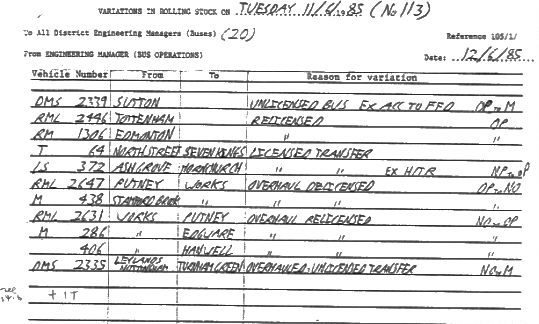 VARIATIONS IN ROLLING STOCK ON TUESDAY 11/6/1985 (No 113)
To All District Engineering Managers (Buses) (20) Reference 105/1/
From ENGINEERING MANAGER (BUS OPERATIONS) Date: 12/6/85
Vehicle Number From To Reason for variation
DMS 2339 SUTTON UNLICENSED BUS EX ACC TO FFD OP to M
RML 2446 TOTTENHAM RELICENSED OP
RM 1306 EDMONTON " "
T 64 NORTH STREET SEVEN KINGS LICENSED TRANSFER
LS 372 ASHGROVE HORNCHURCH " " EX HIRE NP to OP
RML 2647 PUTNEY WORKS OVERHAUL DELICENSED OP to NO
M 438 STAMFORD BROOK " " " "
RML 2631 WORKS PUTNEY OVERHAUL RELICENSED NO to OP
M 286 " EDGWARE " " "
406 " HANWELL " " "
DMS 2335 LEYLANDS NOTTINGHAM TURNHAM GREEN OVERHAULED: UNLICENSED TRANSFER NO to M
+ 1T